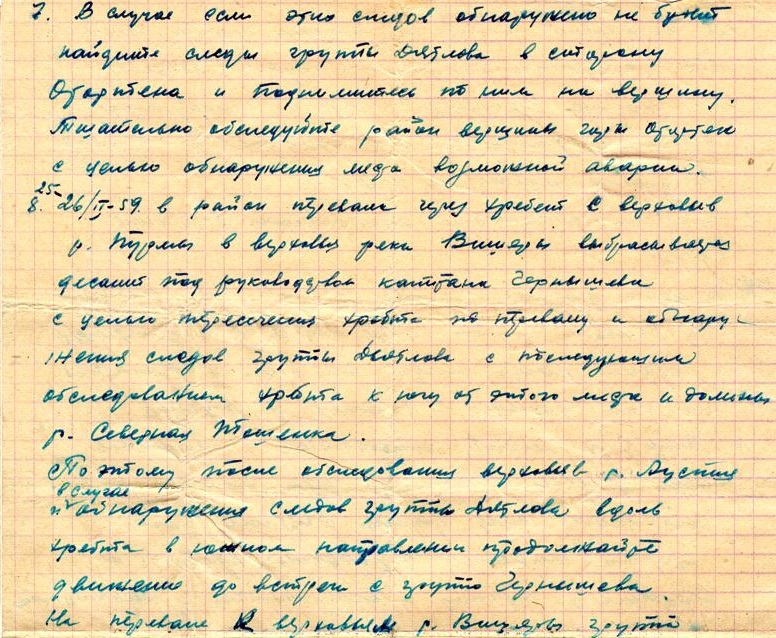 7. В случае если этих следов обнаружено не будет
найдите следы группы Дятлова в сторону
Отортена и поднимитесь по ним на вершину.
Тщательно обследуйте район вершины горы Отортен
с целью обнаружения места возможной аварии.
25-
8. 26/II-59. в район перевала через хребет с верховьев
р. Пурмы в верховья реки Вишеры выбрасывается
десант под руководством капитана Чернышева
с целью пересечения хребта по перевалу и обнару-
жения следов группы Дятлова с последующим
обследованием хребта к югу от этого места и долины
р. Северная Тошемка.
Поэтому после обследования верховьев р. Ауспия
в случае
и обнаружения следов группы Дятлова вдоль
хребта в южном направлении продолжайте
движение до встречи с группой Чернышева.
На перевале в верховьях р. Вишеры группа